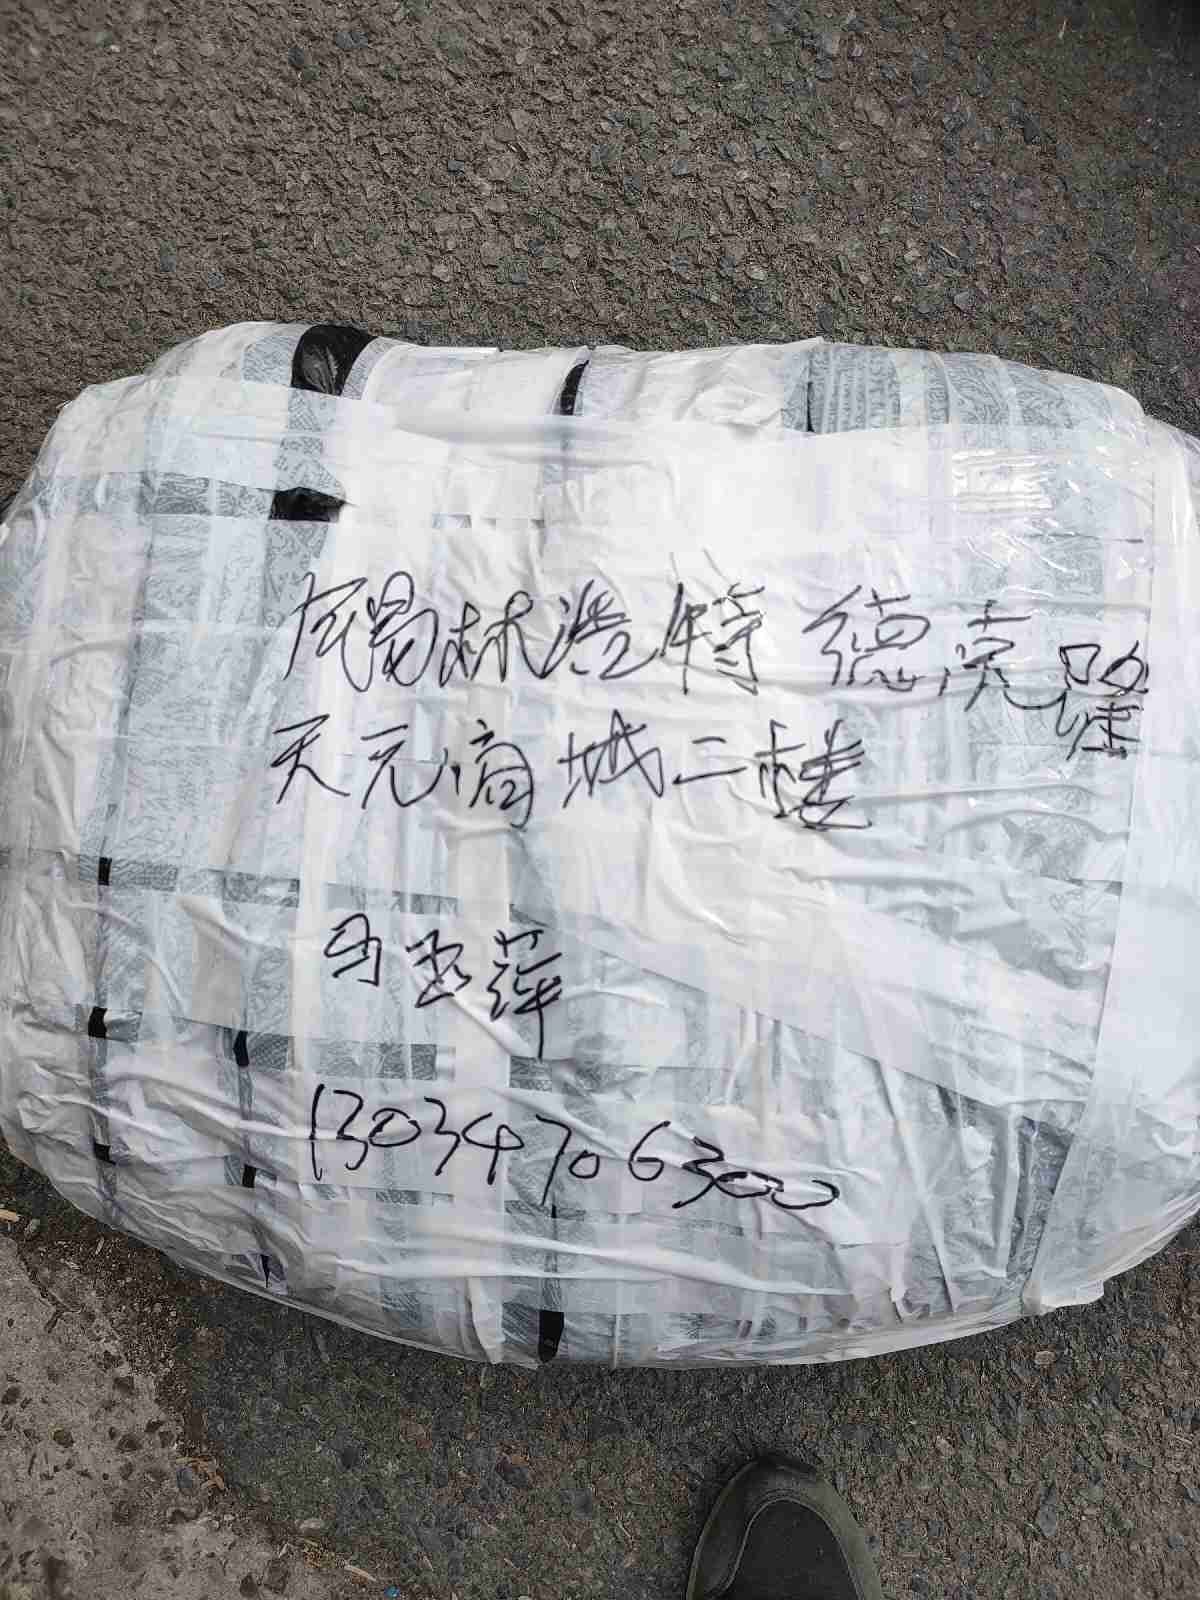 锡林浩特 德克隆
天元商城二楼
马玉萍
13034706300